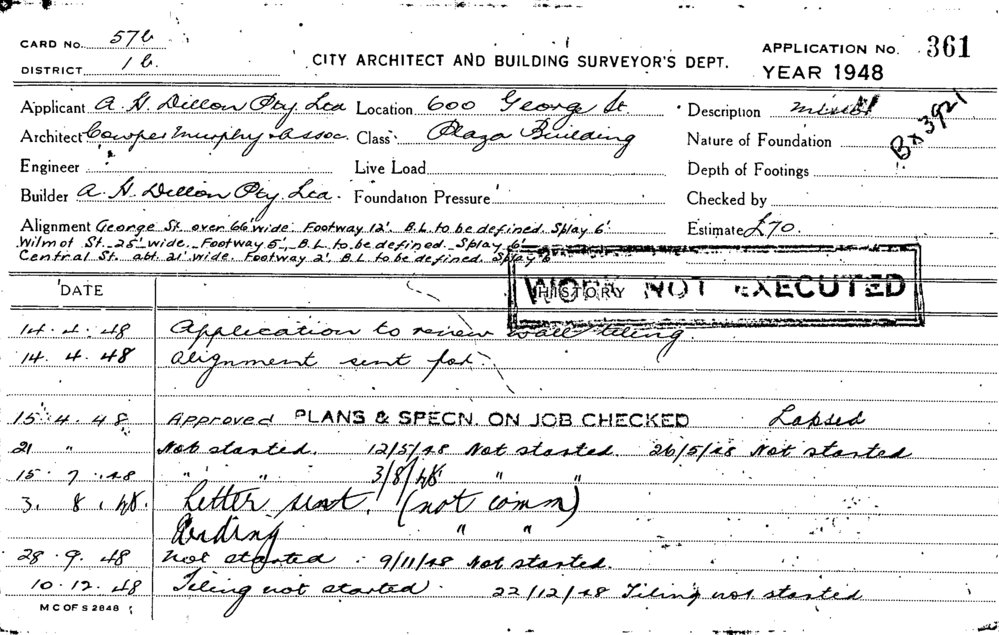 CARD No. 57b
DISTRICT 1b.
CITY ARCHITECT AND BUILDING SURVEYOR'S DEPT.
APPLICATION No. 361
YEAR 1948
Applicant A. G. Dillon Pty. Ltd Location 600 George St. Description
Architect Cowper Murphy & Assoc. Class Plaza Building Nature of Foundation
Bx 3921
Engineer Live Load Depth of Footings
Builder A. G. Dillon Pty. Ltd. Foundation Pressure Checked by
Alignment George St. over 66' wide. Footway 12'. B.L. to be defined. Splay 6' Estimate £70.
Wilmot St. 25' wide. Footway 5', B.L. to be defined. Splay 6'
Central St. abt. 21' wide. Footway 2'. B.L. to be defined. Splay 6'
WORK NOT EXECUTED
DATE HISTORY
14.4.48 Application to renew wall tiling.
14.4.48 Alignment sent for.
15.4.48 Approved PLANS & SPECN. ON JOB CHECKED Lapsed
21 " Not started. 12/5/48 Not started. 26/5/48 Not started
15.7.48 " " 3/8/48 " "
3.8.48. Letter sent. (not comm)
Pending " "
28.9.48 Not started. 9/11/48 Not started.
10.12.48 Tiling not started. 22/12/48 Tiling not started
M C OF S 2648